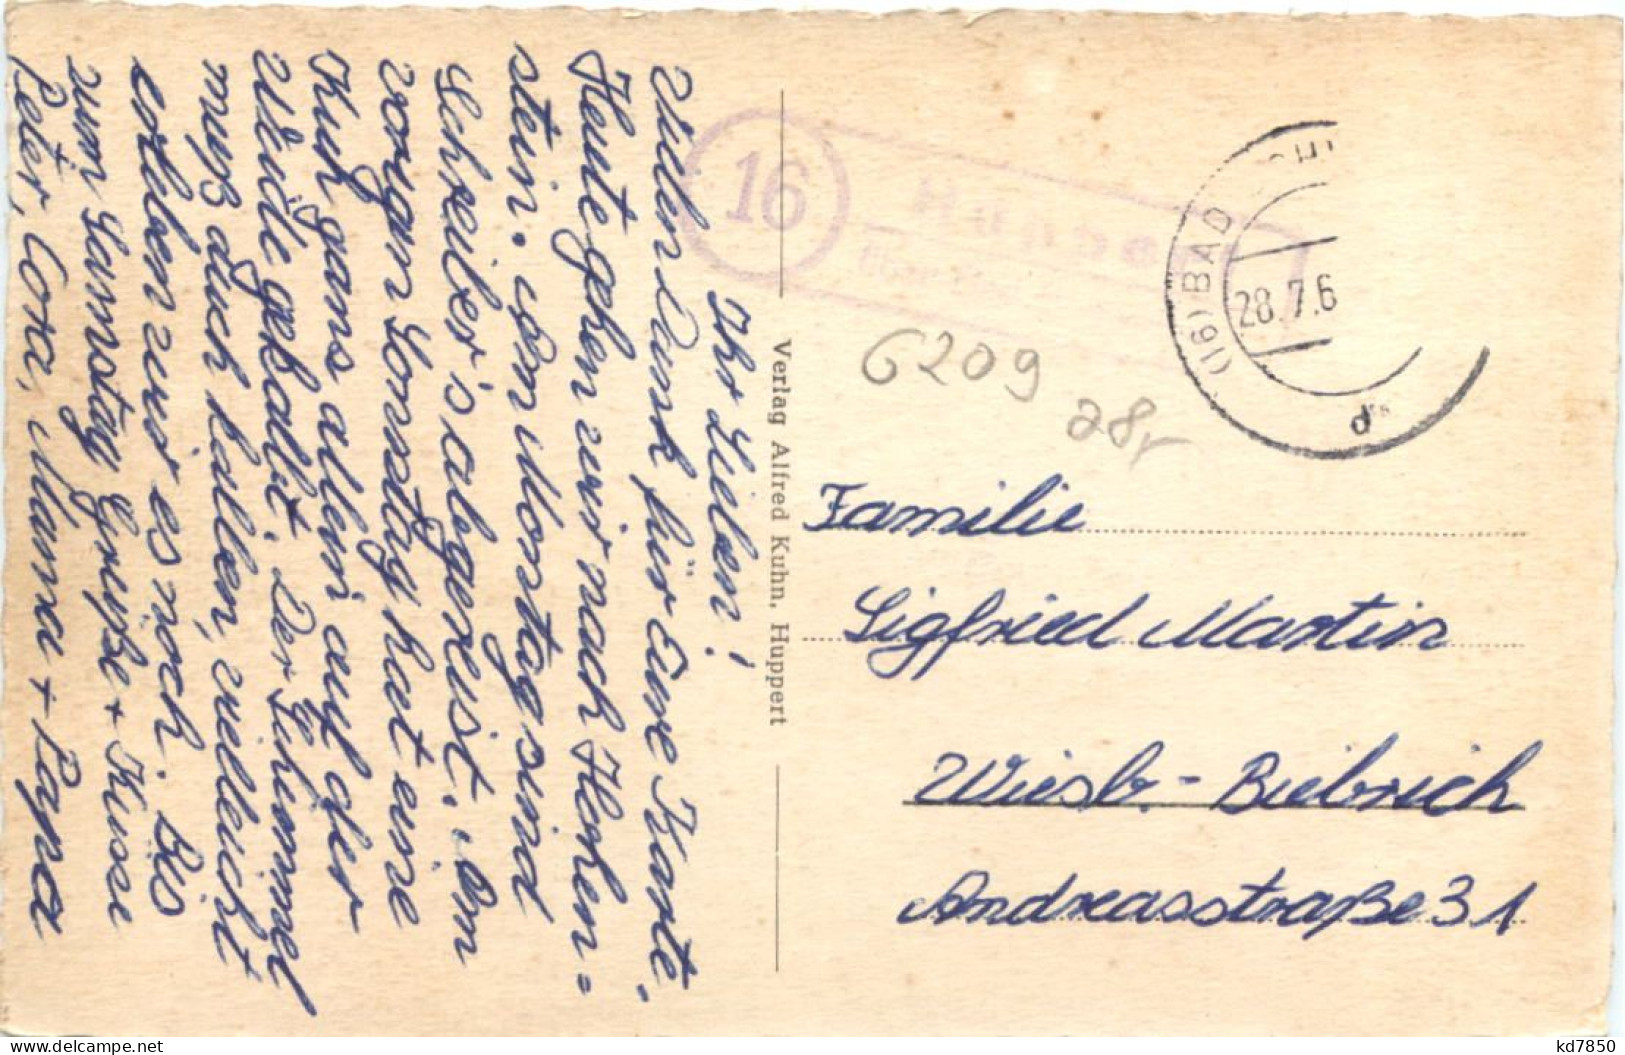 Ihr Lieben!
Vielen Dank für Eure Karte.
Heute gehen wir nach Hohen=
stein. Am Montag sind
Schreiber's abgereist. Am
vorigen Sonntag hat eine
Kuh ganz allein auf der
Weide gekalbt. Der Schimmel
muß auch kalben, vielleicht
erleben wir es noch. Bis
zum Samstag Grüße + Küsse
Peter, Cora, Mama + Papa
Verlag Alfred Kuhn, Huppert
16
(16) BAD
28.7.6
d
6209
Familie
Sigfried Martin
Wiesb.-Biebrich
Andreasstraße 31
kd7850